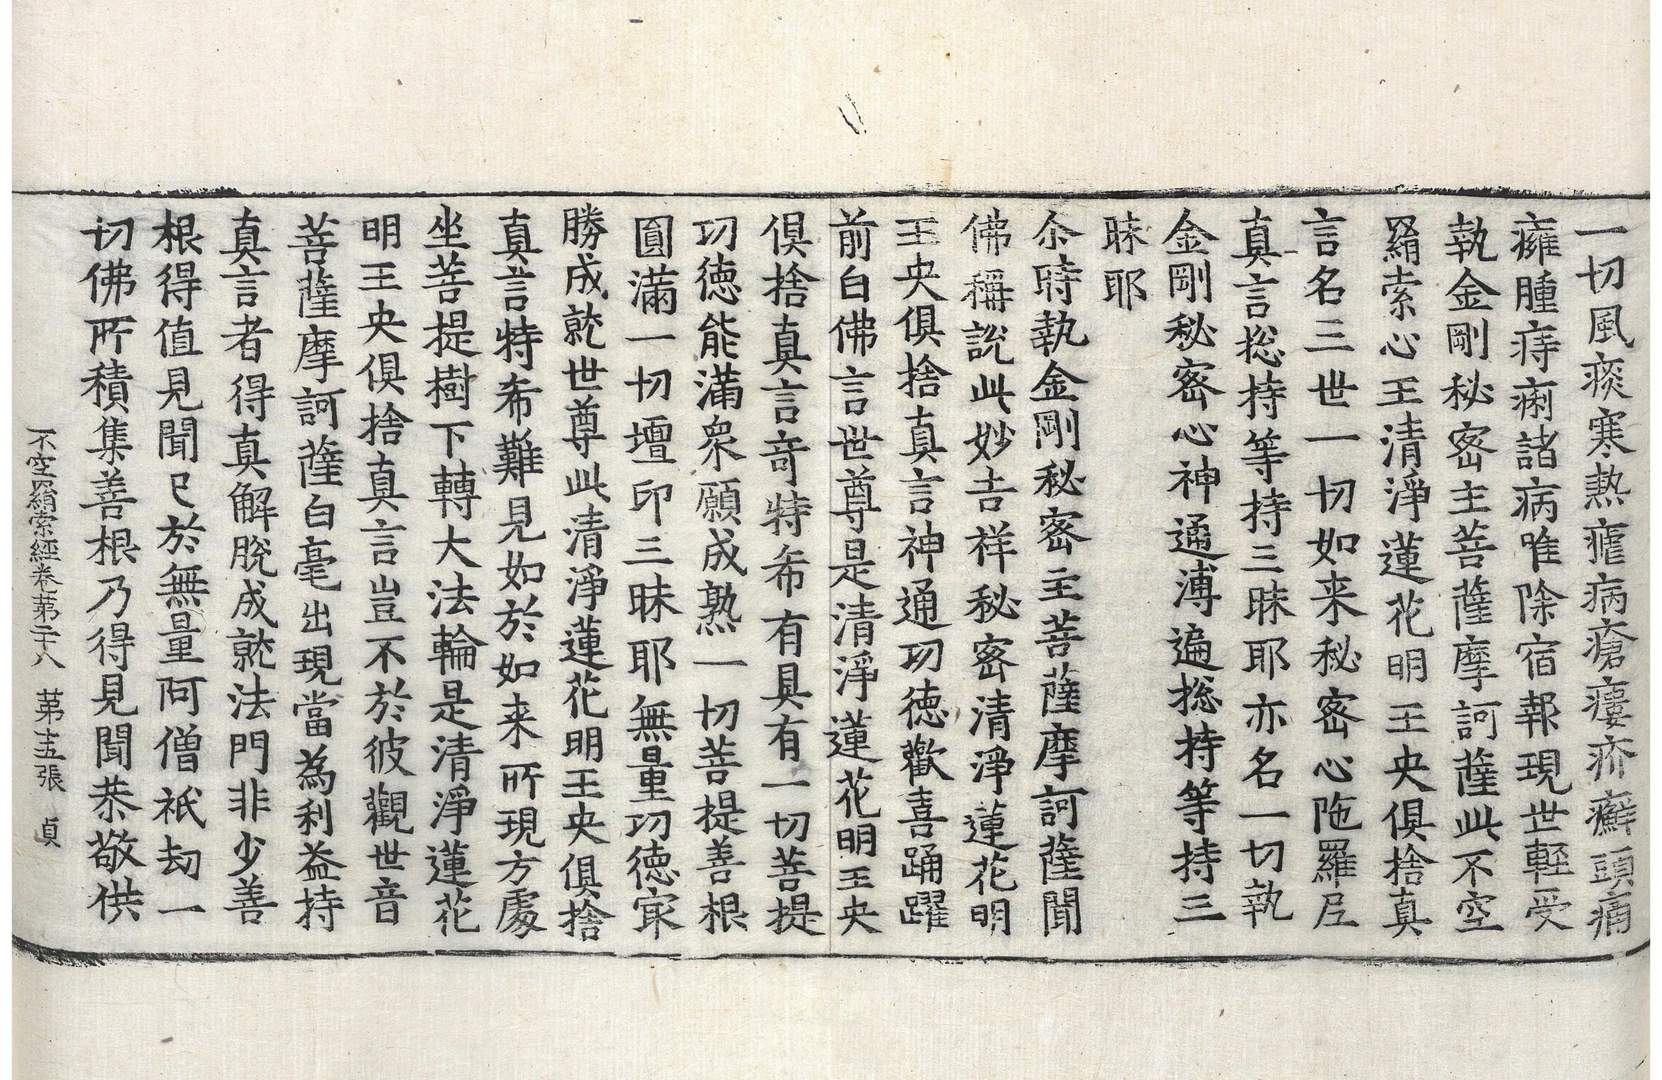 一切風痰寒熱瘧病瘡瘻疥癬頭痛
癰腫痔痢諸病唯除宿報現世輕受
執金剛秘密主菩薩摩訶薩此不空
羂索心王清淨蓮花明王央俱捨真
言名三世一切如来秘密心陁羅尼
真言揔持等持三昧耶亦名一切執
金剛秘密心神通溥遍揔持等持三
昧耶
尒時執金剛秘密主菩薩摩訶薩聞
佛稱說此妙吉祥秘密清淨蓮花明
王央俱捨真言神通功德歡喜踊躍
前白佛言世尊是清淨蓮花明王央
俱捨真言奇特希有具有一切菩提
功德能滿衆願成熟一切菩提善根
圓滿一切壇印三昧耶無量功德冣
勝成就世尊此清淨蓮花明王央俱捨
真言特希難見如於如来所現方處
坐菩提樹下轉大法輪是清淨蓮花
明王央俱捨真言豈不於彼觀世音
菩薩摩訶薩白毫出現當為利益持
真言者得真解脫成就法門非少善
根得值見聞已於無量阿僧祇劫一
切佛所積集善根乃得見聞恭敬供
不空羂索經卷第二十八 第十五張 貞